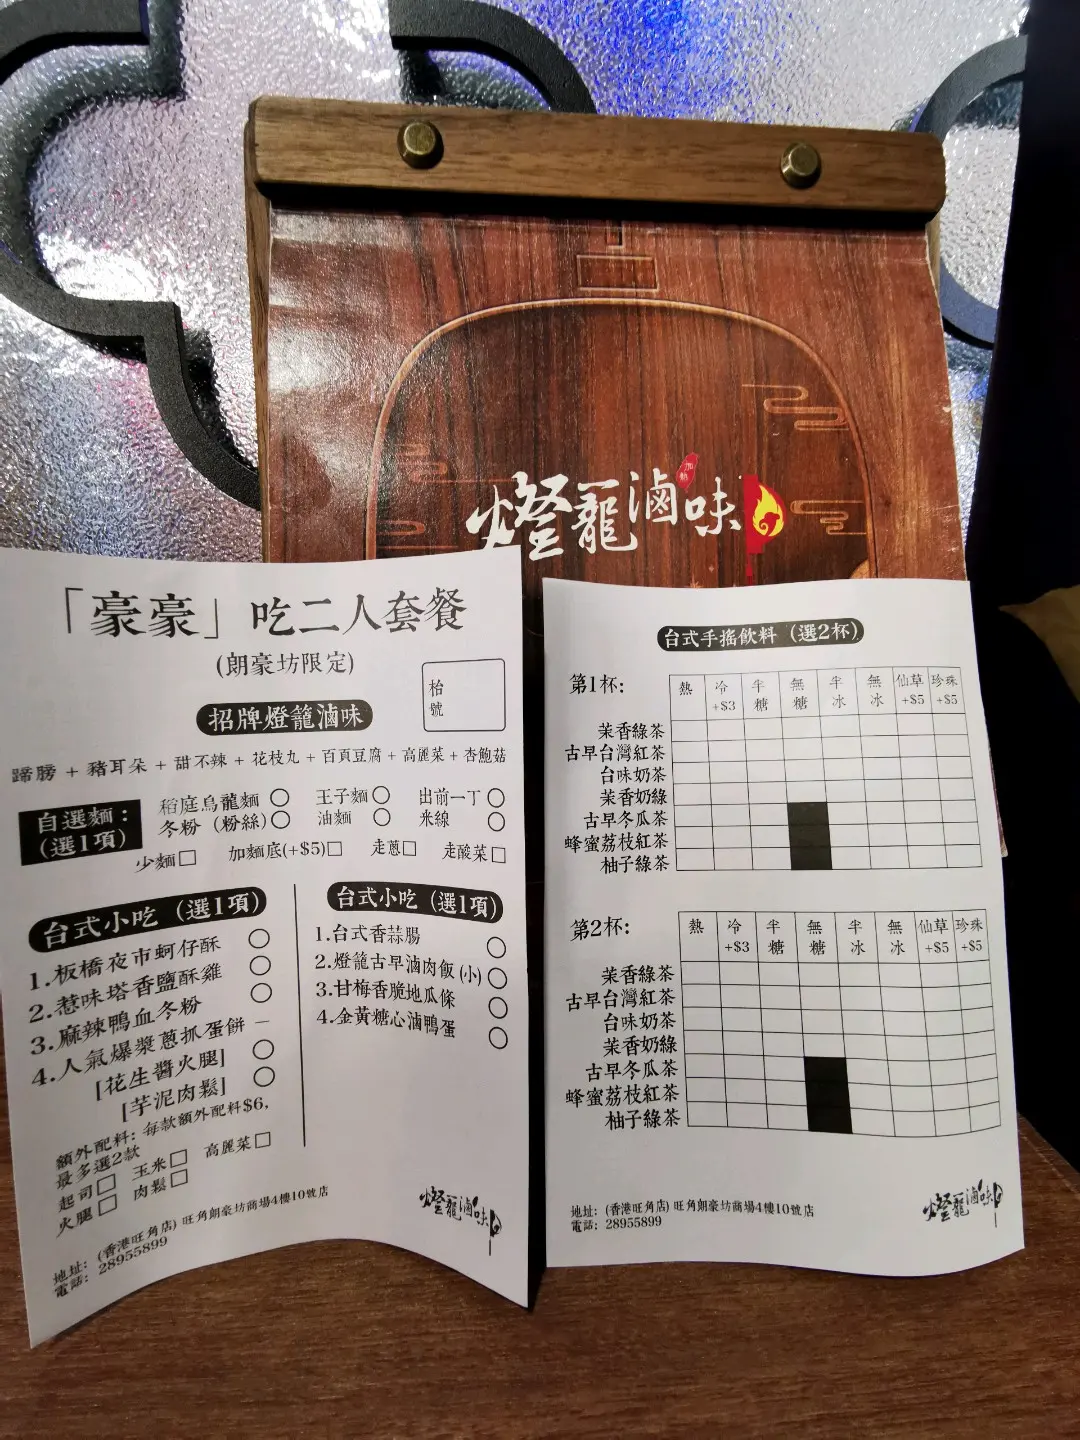 加熱
燈籠滷味
「豪豪」吃二人套餐
(朗豪坊限定)
枱號
招牌燈籠滷味
蹄膀 + 豬耳朵 + 甜不辣 + 花枝丸 + 百頁豆腐 + 高麗菜 + 杏鮑菇
自選麵：
(選1項)
稻庭烏龍麵 王子麵 出前一丁
冬粉 (粉絲) 油麵 米線
少麵 加麵底(+$5) 走蔥 走酸菜
台式小吃 (選1項)
1.板橋夜市蚵仔酥
2.惹味塔香鹽酥雞
3.麻辣鴨血冬粉
4.人氣爆漿蔥抓蛋餅 –
[花生醬火腿]
[芋泥肉鬆]
額外配料: 每款額外配料$6,
最多選2款
起司 玉米 高麗菜
火腿 肉鬆
地址: (香港旺角店) 旺角朗豪坊商場4樓10號店
電話: 28955899
台式小吃 (選1項)
1.台式香蒜腸
2.燈籠古早滷肉飯 (小)
3.甘梅香脆地瓜條
4.金黃糖心滷鴨蛋
燈籠滷味
台式手搖飲料 (選2杯)
第1杯: 熱 冷+$3 半糖 無糖 半冰 無冰 仙草+$5 珍珠+$5
茉香綠茶
古早台灣紅茶
台味奶茶
茉香奶綠
古早冬瓜茶
蜂蜜荔枝紅茶
柚子綠茶
第2杯: 熱 冷+$3 半糖 無糖 半冰 無冰 仙草+$5 珍珠+$5
茉香綠茶
古早台灣紅茶
台味奶茶
茉香奶綠
古早冬瓜茶
蜂蜜荔枝紅茶
柚子綠茶
地址: (香港旺角店) 旺角朗豪坊商場4樓10號店
電話: 28955899
燈籠滷味